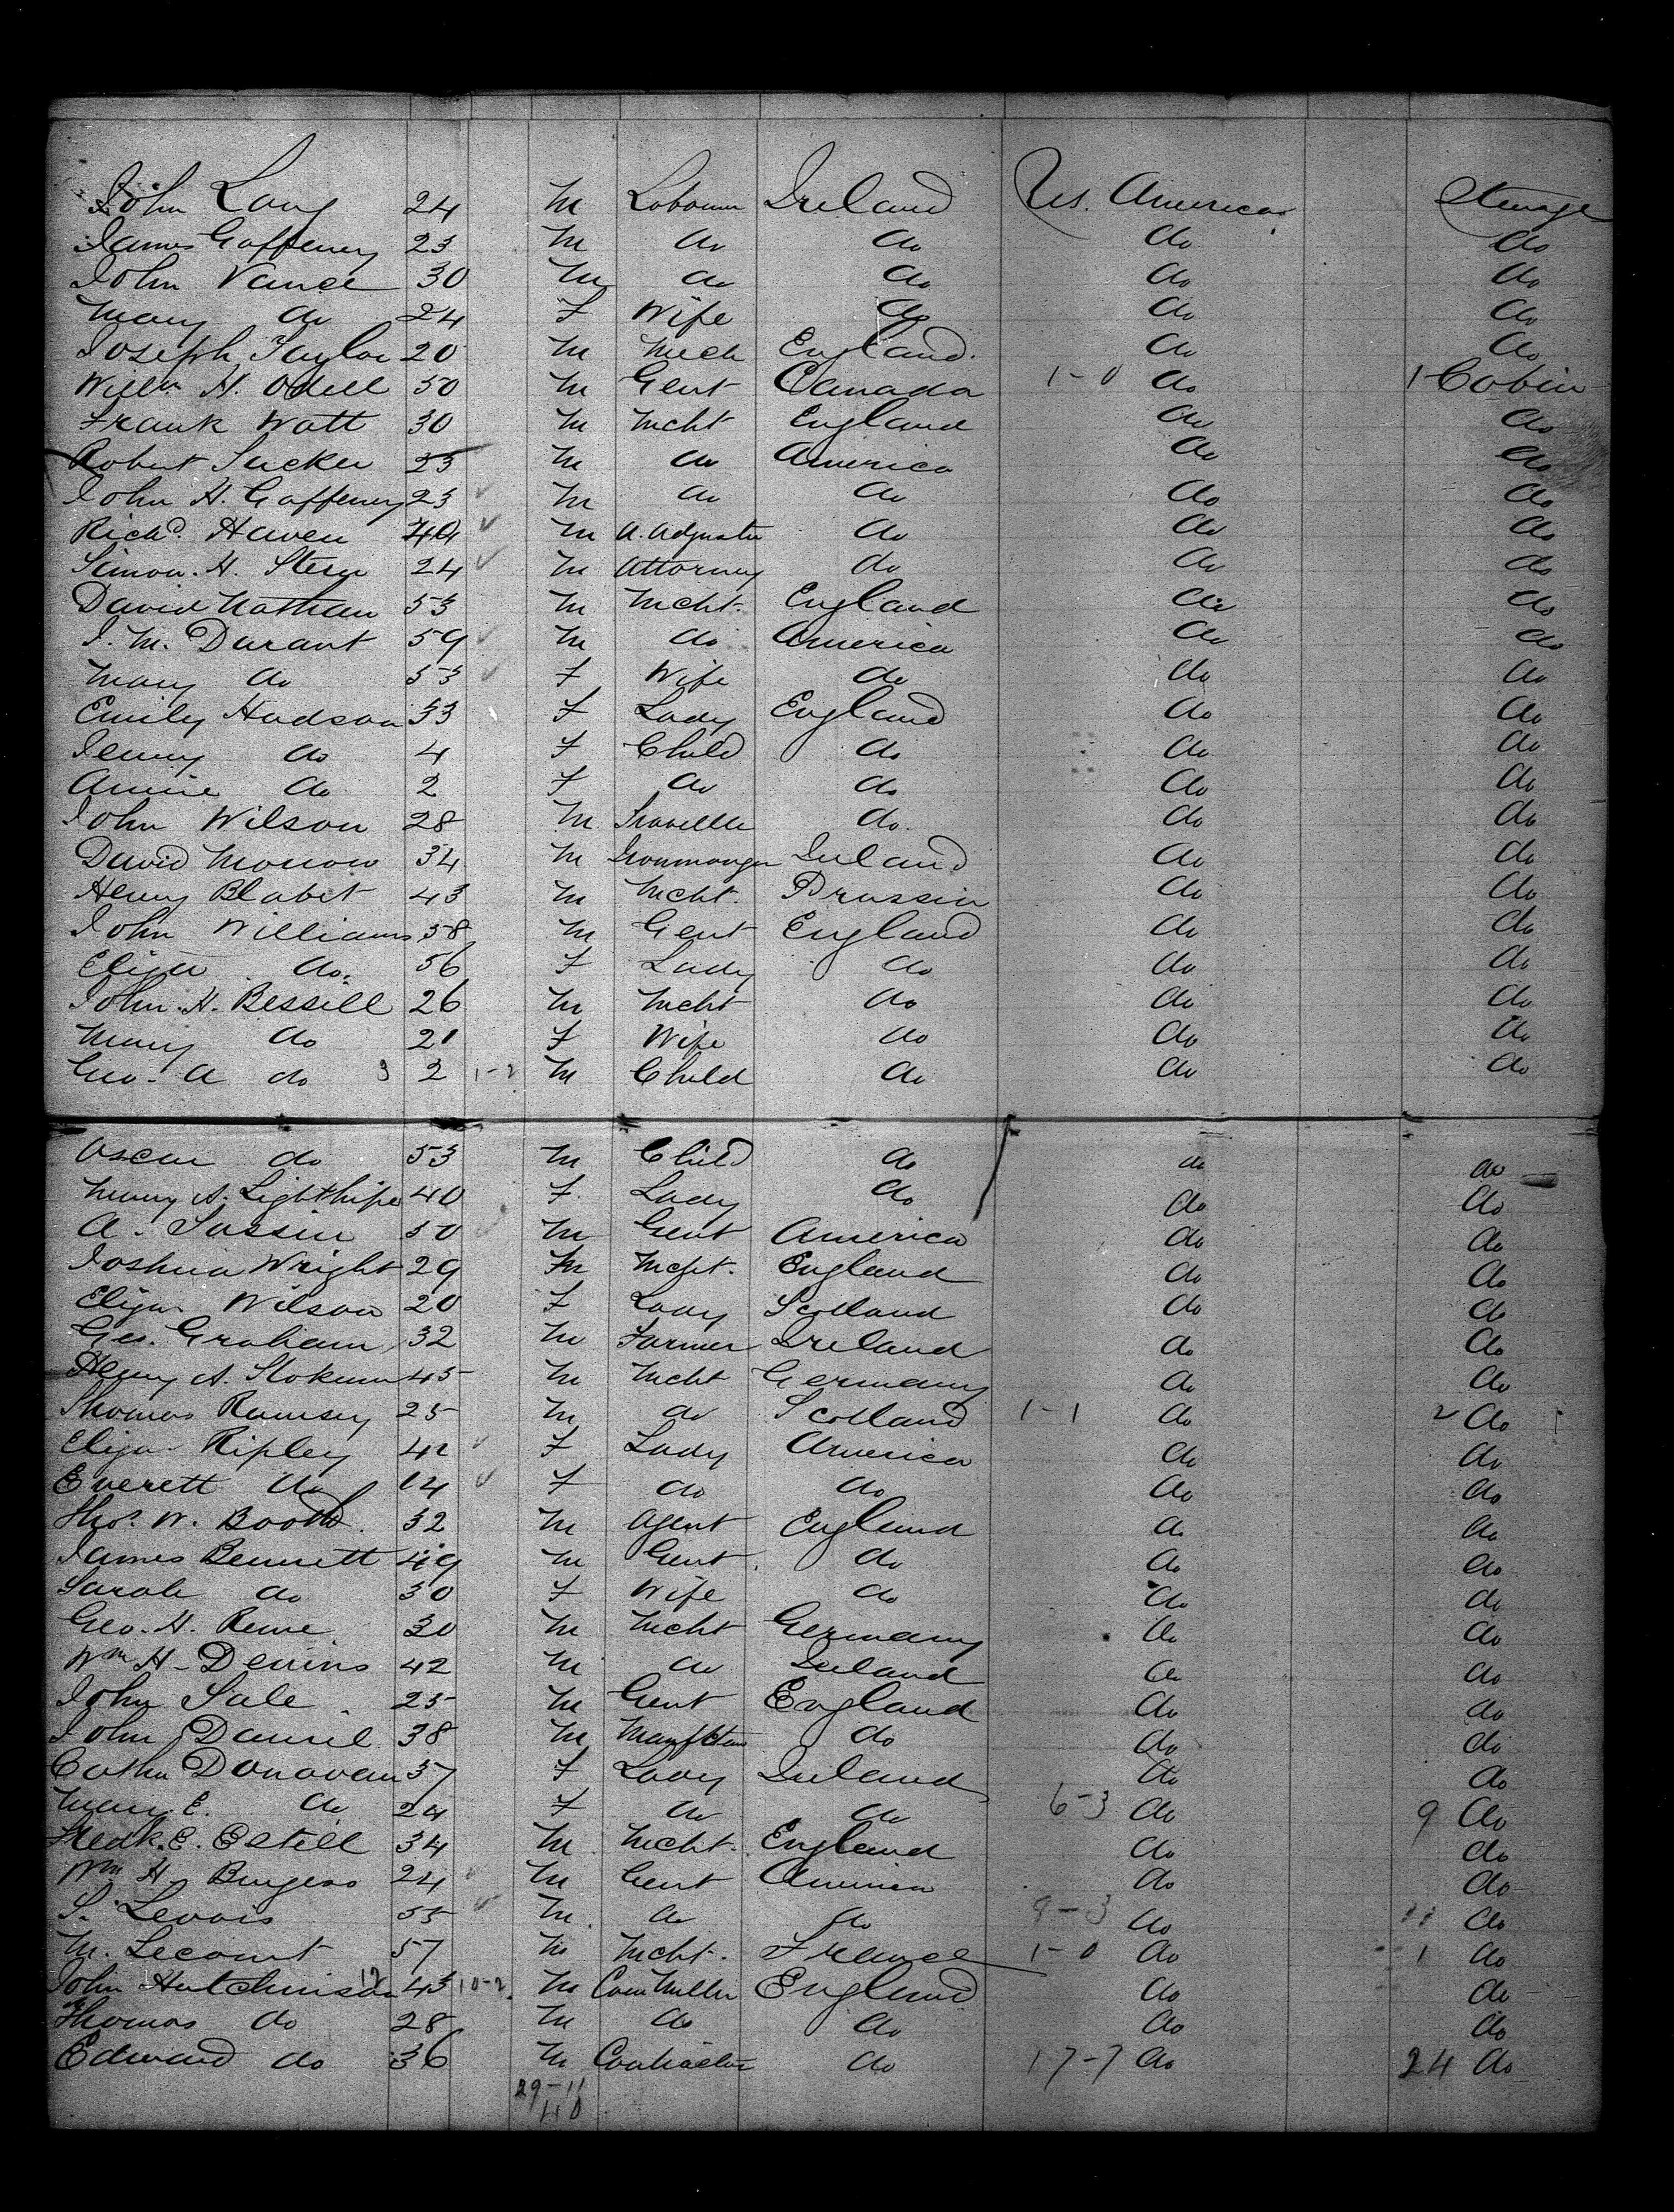 John Lang 24 M Labourer Ireland U.S. America Steerage
James Gaffeney 23 M do do do do
John Vance 30 M do do do do
Mary do 24 F Wife do do do
Joseph Taylor 20 M Mech England. do do
Willm H. Odell 50 M Gent Canada 1-0 do 1 Cabin
Frank Watt 30 M Mcht England do do
Robert Tucker 25 M do America do do
John H. Gaffeney 23 M do do do do
Richd. Haven 44 M A. Adjuster do do do
Simon. H. Stern 24 M Attorney do do do
David Nathan 53 M Mcht. England do do
J. M. Durant 59 M do America do do
Mary do 53 F Wife do do do
Emily Hudson 33 F Lady England do do
Jenny do 4 F Child do do do
Annie do 2 F do do do do
John Wilson 28 M Traveller do. do do
David Morrow 34 M Ironmonger Ireland do do
Henry Blabet 43 M Mcht. Prussia do do
John Williams 58 M Gent England do do
Eliza do. 56 F Lady do do do
John. H. Bessill 26 M Mcht do do do
Mary do 21 F Wife do do do
Geo. A do 3 2 1-2 M Child do do do
Oscar do 53 M Child do do do
Mary A. Lighthipe 40 F. Lady do do do
A. Sassin 50 M Gent America do do
Joshua Wright 29 M Mcht. England do do
Eliza Wilson 20 F Lady Scotland do do
Geo. Graham 32 M Farmer Ireland do do
Henry A. Stokum 45 M Mcht Germany do do
Thomas Ramsey 25 M do Scotland 1-1 do 2 do
Eliza Ripley 42 F Lady America do do
Everett do 14 F do do do do
Thos. W. Booth. 32 M Agent England do do
James Bennett 49 M Gent. do do do
Sarah do 30 F Wife do do do
Geo. H. Reme 30 M Mcht Germany do do
Wm H- Devins 42 M do Ireland do do
John Sale 25 M Gent England do do
John Daniel 38 M Manfctur do do do
Cathn Donovan 37 F Lady Ireland do do
Mary E. do 24 F do do 6-3 do 9 do
Fredk. E. Estell 34 M Mcht. England do do
Wm H. Burgess 24 M Gent America do do
S. Lewis 55 M. do do 9-3 do 11 do
M. Lecount 57 M Mcht. France 1-0 do 1 do
John Hutchinson 12 43 10-2 M Corn Miller England do do
Thomas do 28 M do do do do
Edward do 36 M Contractor do 17-7 do 24 do
29-11
40